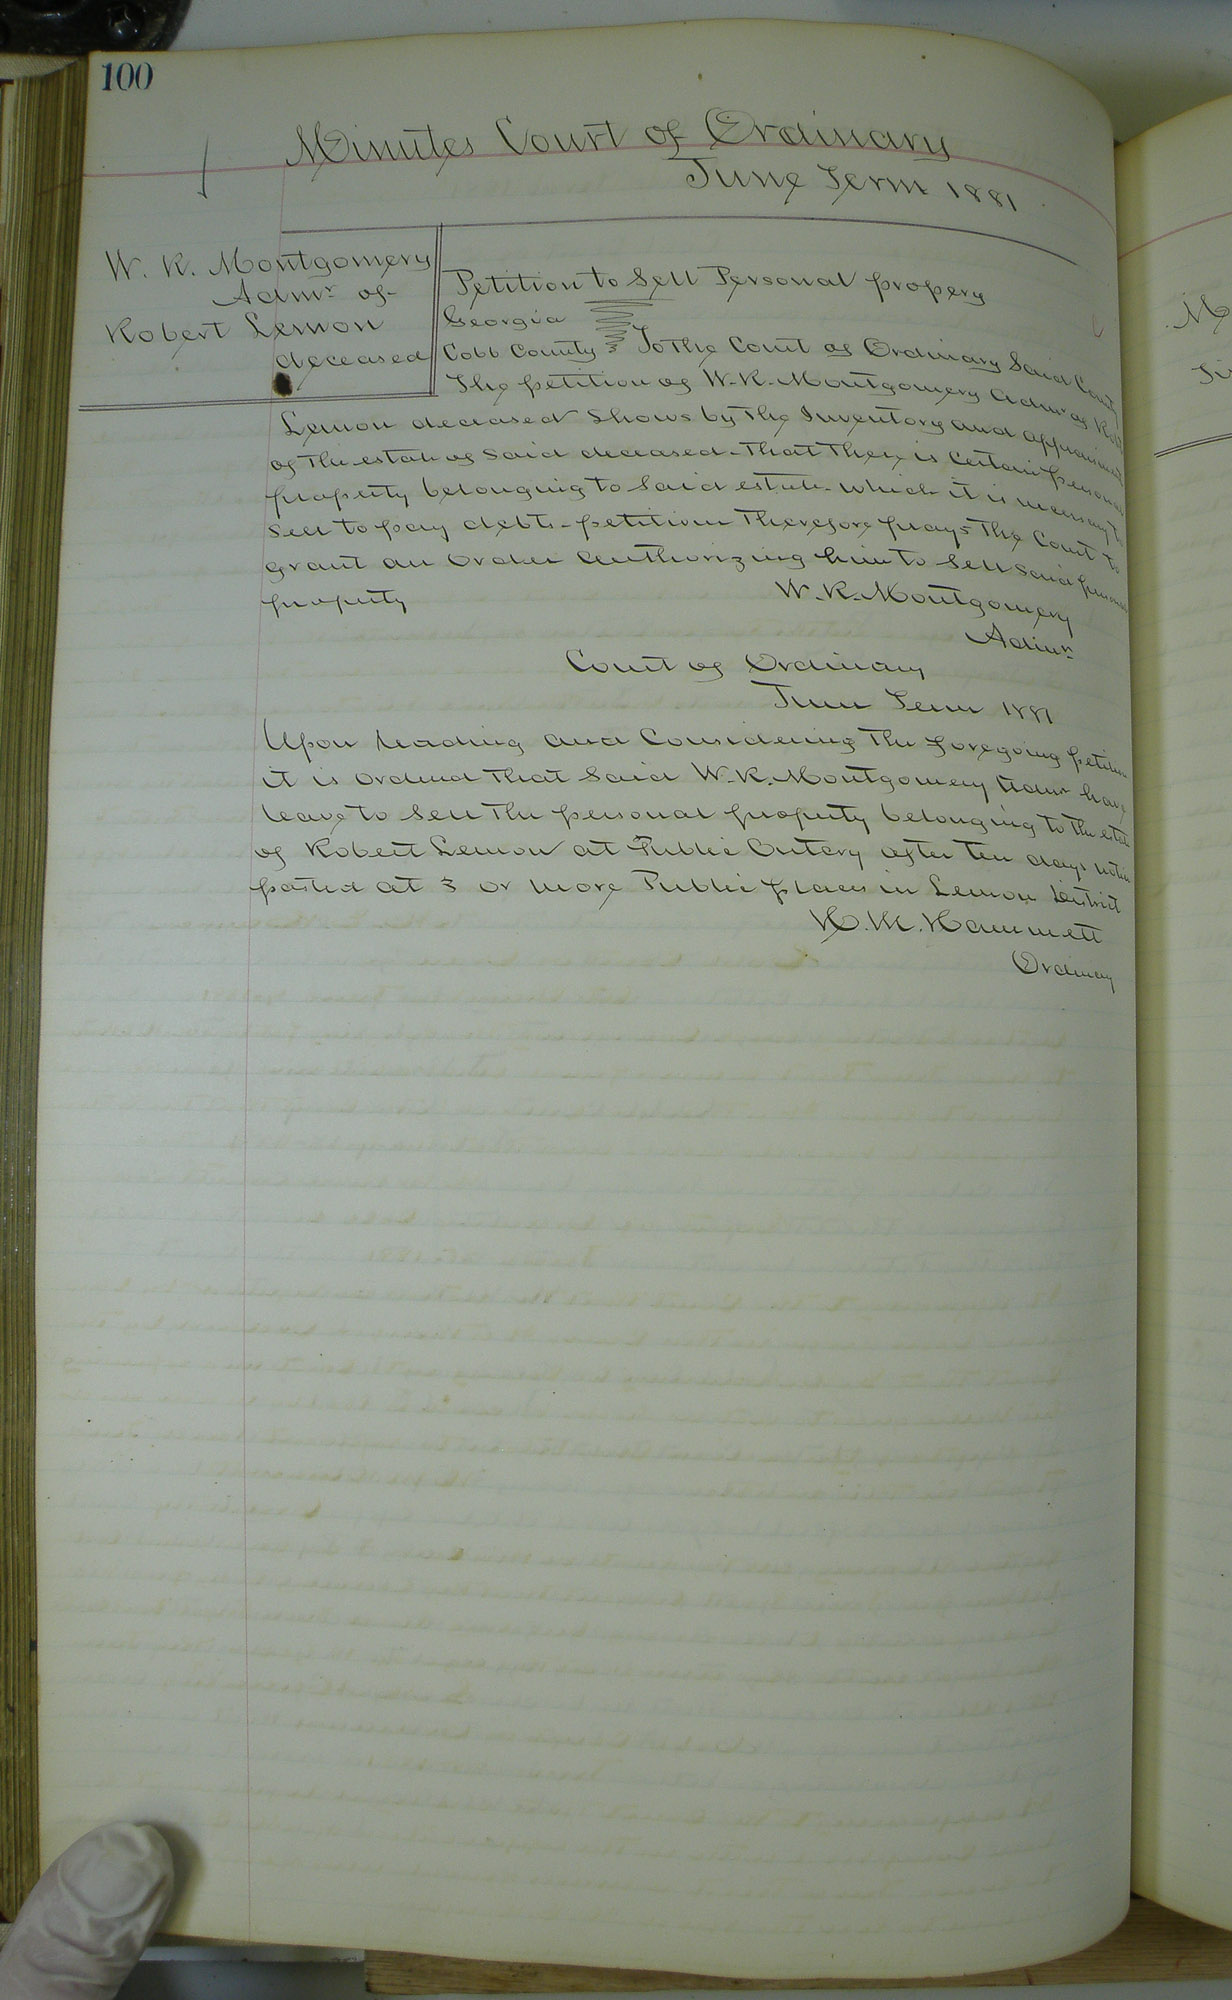 100
Minutes Court of Ordinary
June Term 1881
W. R. Montgomery
Admr of
Robert Lemon
deceased
Petition to Sell Personal propery
Georgia
Cobb County To the Court of Ordinary Said County
The petition of W. R. Montgomery Admr of Robt
Lemon deceased Shows by the Inventory and appraisment
of the estate of said deceased that there is certain personal
property belonging to said estate which it is necessary to
sell to pay debts - petitioner therefore prays the Court to
grant an order authorizing him to sell said personal
property
W. R. Montgomery
Admr
Court of Ordinary
June Term 1881
Upon reading and Considering the foregoing petition
it is ordered that said W. R. Montgomery Admr have
leave to sell the personal property belonging to the estate
of Robert Lemon at Public Outcry after ten days notice
posted at 3 or more Public places in Lemon District
H. M. Hammett
Ordinary